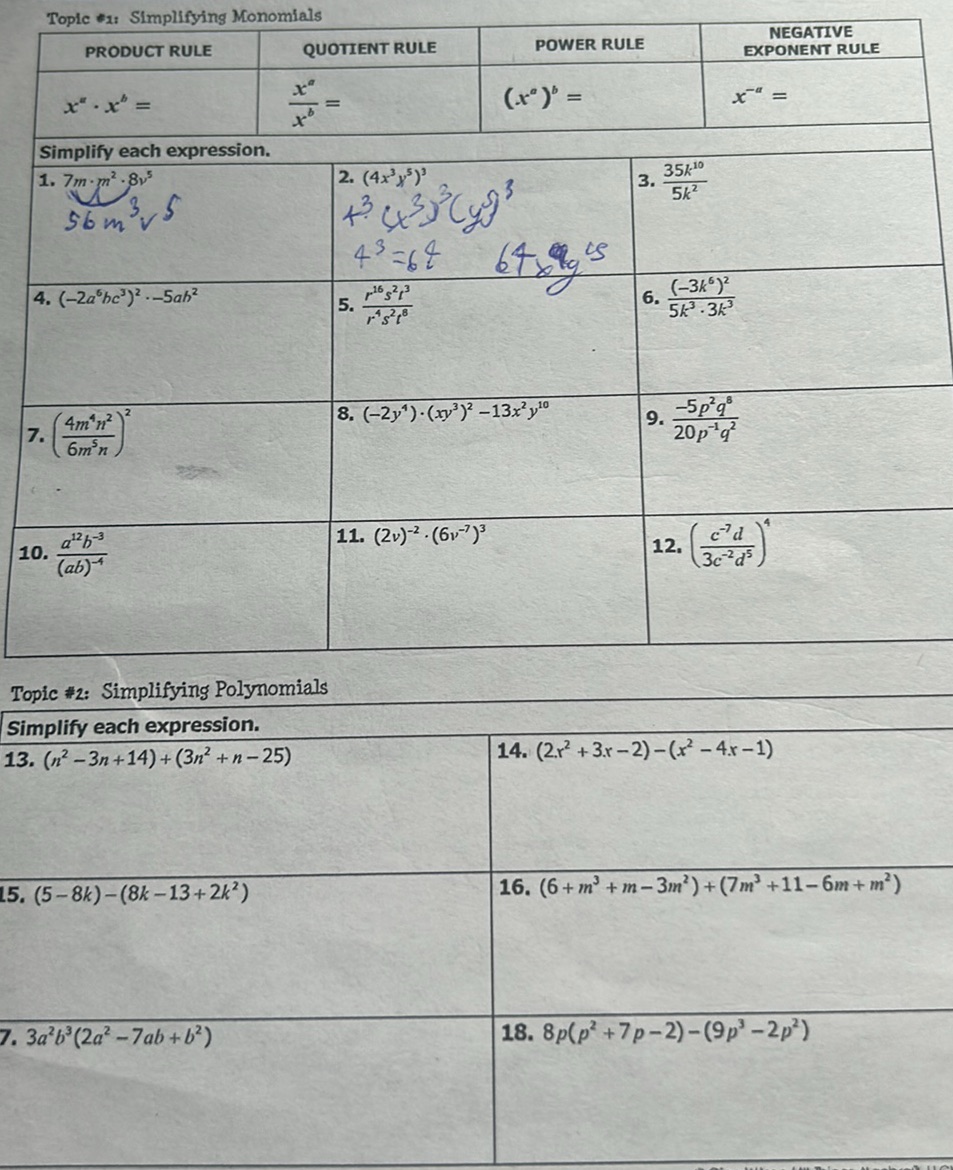 Topic #1: Simplifying Monomials
PRODUCT RULE QUOTIENT RULE POWER RULE NEGATIVE EXPONENT RULE
xᵃ · xᵇ = xᵃ/xᵇ = (xᵃ)ᵇ = x⁻ᵃ =
Simplify each expression.
1. 7m · m² · 8v⁵
56m³v⁵
2. (4x³y⁵)³
4³ (x³)³(y⁵)³
4³ = 64 64x⁹y¹⁵
3. 35k¹⁰/5k²
4. (−2a⁶bc³)² · −5ab²
5. r¹⁶s²t³/r⁴s²t⁸
6. (−3k⁶)²/5k³ · 3k³
7. (4m⁴n²/6m⁵n)²
8. (−2y⁴) · (xy³)² − 13x²y¹⁰
9. −5p²q⁸/20p⁻¹q²
10. a¹²b⁻³/(ab)⁻⁴
11. (2v)⁻² · (6v⁻⁷)³
12. (c⁻⁷d/3c⁻²d⁵)⁴
Topic #2: Simplifying Polynomials
Simplify each expression.
13. (n² − 3n + 14) + (3n² + n − 25)
14. (2x² + 3x − 2) − (x² − 4x − 1)
15. (5 − 8k) − (8k − 13 + 2k²)
16. (6 + m³ + m − 3m²) + (7m³ + 11 − 6m + m²)
7. 3a²b³(2a² − 7ab + b²)
18. 8p(p² + 7p − 2) − (9p³ − 2p²)